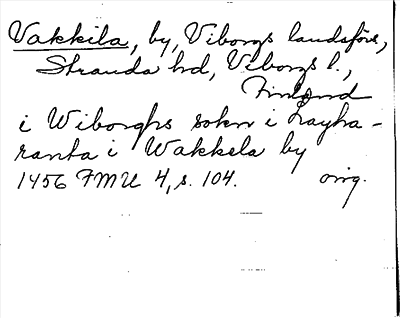 Vakkila, by, Viborgs landsförs.,
Stranda hd, Viborgs l.,
Finland
i Wiborghs sokn i Layha-
ranta i Wakkela by
1456 FMU 4, s. 104. orig.